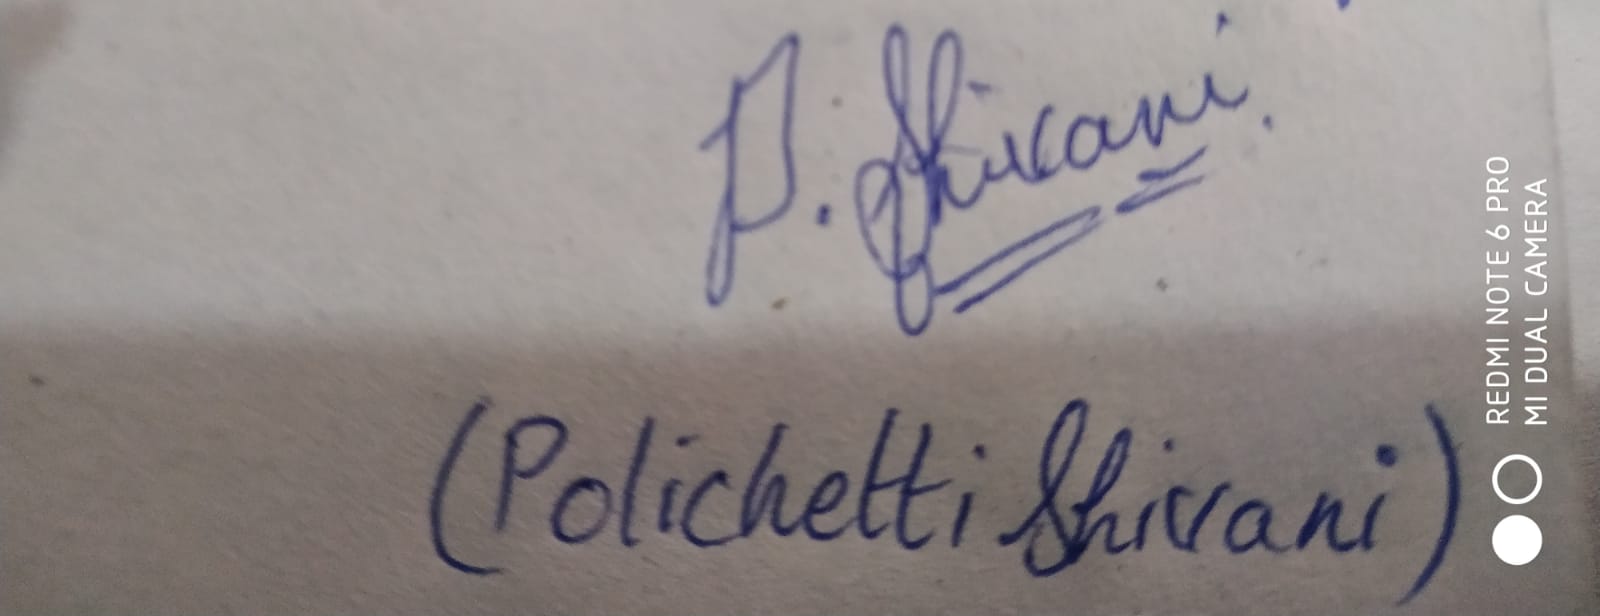 P. Shivani.
(Polichetti Shivani)
REDMI NOTE 6 PRO
MI DUAL CAMERA